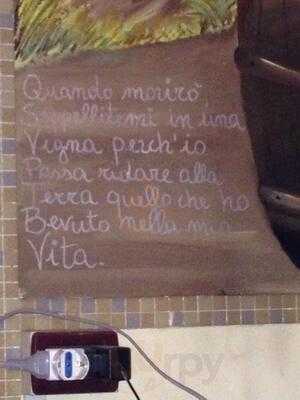 Quando morirò
Seppellitemi in una
Vigna perch'io
Possa ridare alla
Terra quello che ho
Bevuto nella mia
Vita.